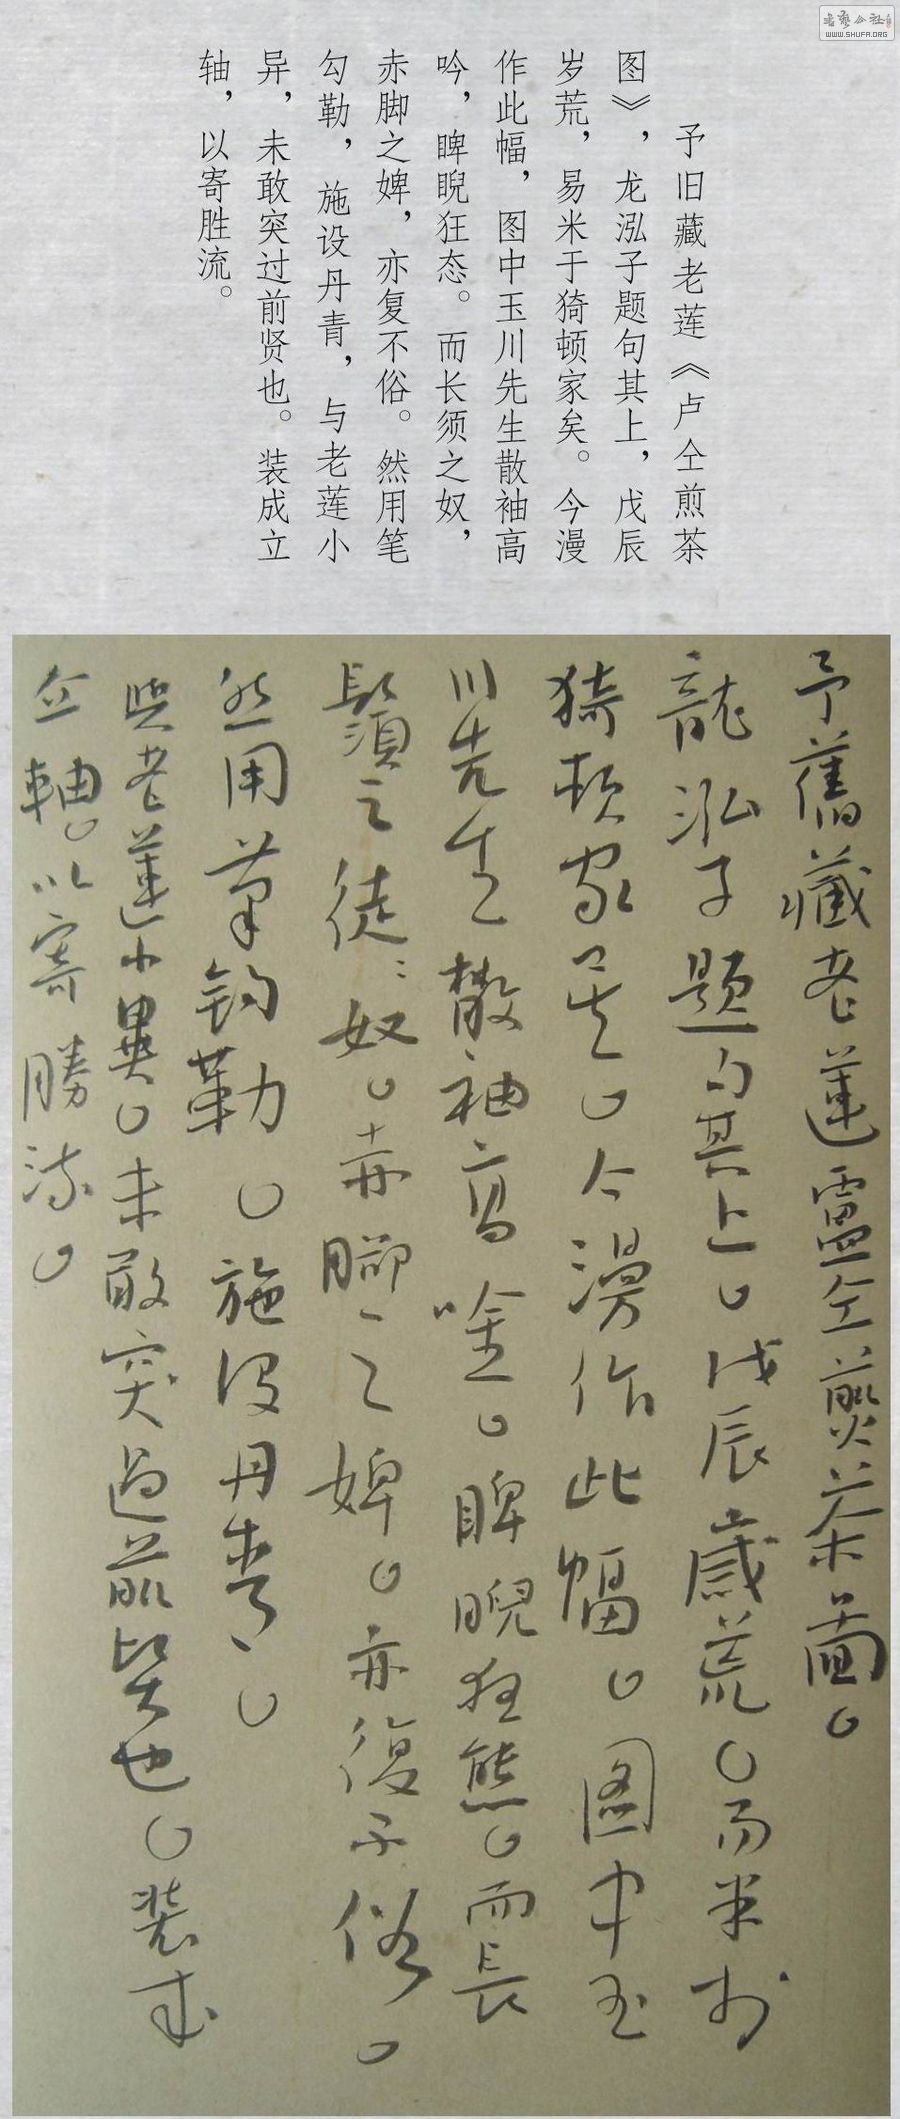 书艺公社
WWW.SHUFA.ORG
予旧藏老莲《卢仝煎茶
图》，龙泓子题句其上，戊辰
岁荒，易米于猗顿家矣。今漫
作此幅，图中玉川先生散袖高
吟，睥睨狂态。而长须之奴，
赤脚之婢，亦复不俗。然用笔
勾勒，施设丹青，与老莲小
异，未敢突过前贤也。装成立
轴，以寄胜流。
予舊藏老蓮盧仝煎茶圖。
龍泓子題句其上。戊辰歲荒。易米於
猗頓家矣。今漫作此幅。圖中玉
川先生散袖高唫。睥睨狂態。而長
鬚之徒奴。赤腳之婢。亦復不俗。
然用筆鈎勒。施設丹青。
與老蓮小異。未敢突過前賢也。裝成
立軸。以寄勝流。